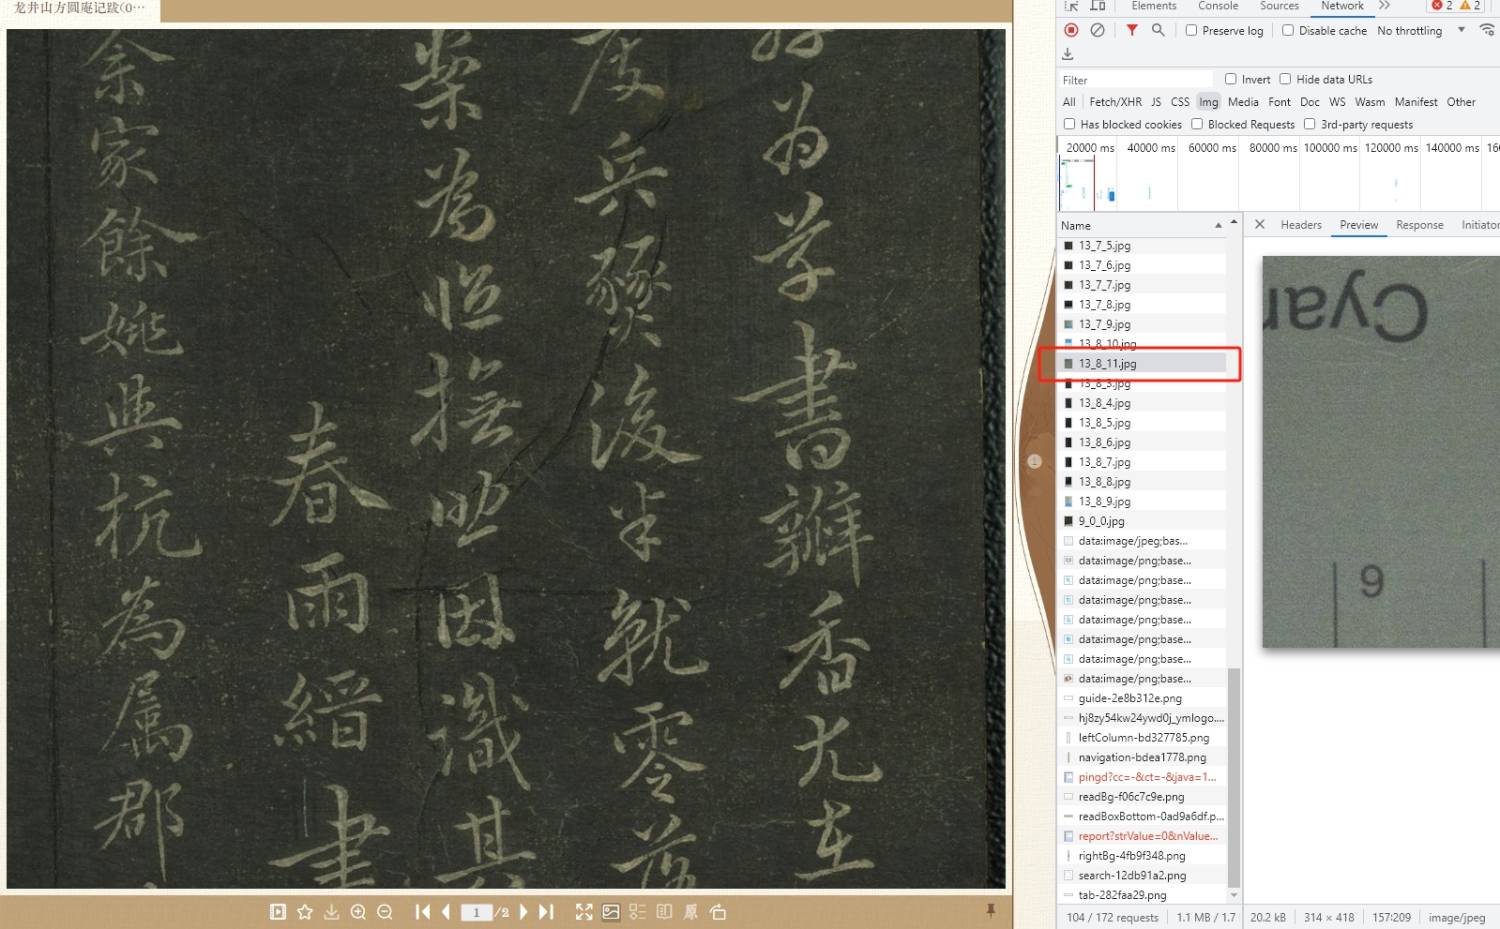 龙井山方圆庵记跋(0…
为学書瓣香尤在
兵燹後半就零落
樂為臨撫
因識其
春雨縉書
余家餘姚與杭為属郡
1 /2
原
Elements Console Sources Network 2 2
Preserve log Disable cache No throttling
Filter Invert Hide data URLs
All Fetch/XHR JS CSS Img Media Font Doc WS Wasm Manifest Other
Has blocked cookies Blocked Requests 3rd-party requests
20000 ms 40000 ms 60000 ms 80000 ms 100000 ms 120000 ms 140000 ms 16
Name
Headers Preview Response Initiator
13_7_5.jpg
13_7_6.jpg
13_7_7.jpg
13_7_8.jpg
13_7_9.jpg
13_8_10.jpg
13_8_11.jpg
13_8_3.jpg
13_8_4.jpg
13_8_5.jpg
13_8_6.jpg
13_8_7.jpg
13_8_8.jpg
13_8_9.jpg
9_0_0.jpg
data:image/jpeg;bas...
data:image/png;base...
data:image/png;base...
data:image/png;base...
data:image/png;base...
data:image/png;base...
data:image/png;base...
data:image/png;base...
guide-2e8b312e.png
hj8zy54kw24ywd0j_ymlogo....
leftColumn-bd327785.png
navigation-bdea1778.png
pingd?cc=-&ct=-&java=1...
readBg-f06c7c9e.png
readBoxBottom-0ad9a6df.p...
report?strValue=0&nValue...
rightBg-4fb9f348.png
search-12db91a2.png
tab-282faa29.png
Cyan
9
104 / 172 requests 1.1 MB / 1.7 20.2 kB 314 × 418 157:209 image/jpeg